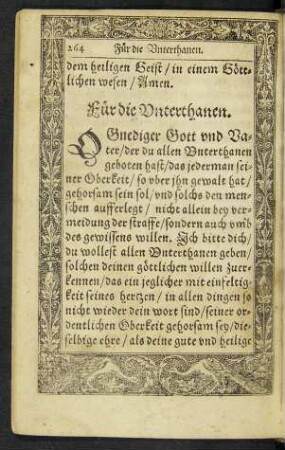 264 Für die Vnterthanen.
dem heiligen Geist / in einem Gött-
lichen wesen / Amen.
Für die Vnterthanen.
O Gnediger Gott vnd Va-
ter / der du allen Vnterthanen
geboten hast / das jederman sei-
ner Oberkeit / so vber jhn gewalt hat /
gehorsam sein sol / vnd solchs den men-
schen aufferlegt / nicht allein bey ver-
meidung der straffe / sondern auch vmb
des gewissens willen. Ich bitte dich /
du wollest allen Vnterthanen geben /
solchen deinen göttlichen willen zuer-
kennen / das ein jeglicher mit einfeltig-
keit seines hertzen / in allen dingen so
nicht wieder dein wort sind / seiner or-
dentlichen Oberkeit gehorsam sey / die-
selbige ehre / als deine gute vnd heilige